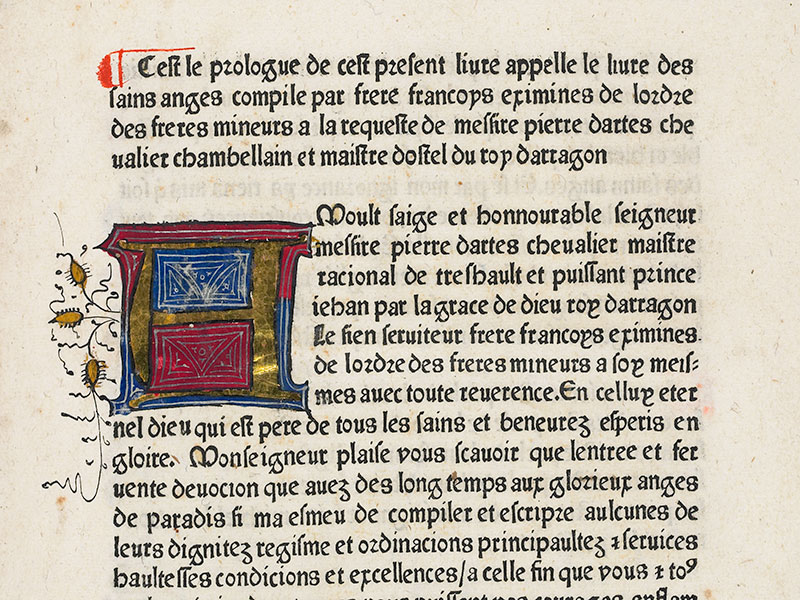 ¶ Cest le prologue de cest present liure appelle le liure des
sains anges compile par frere francoys eximines de lordre
des freres mineurs a la requeste de messire pierre dartes che
ualier chambellain et maistre dostel du roy darragon
A Moult saige et honnourable seigneur
messire pierre dartes cheualier maistre
racional de treshault et puissant prince
iehan par la grace de dieu roy darragon
Le sien seruiteur frere francoys eximines.
de lordre des freres mineurs a soy meis:
mes auec toute reuerence. En celluy eter
nel dieu qui est pere de tous les sains et beneurez esperis en
gloire. Monseigneur plaise vous scauoir que lentree et fer
uente deuocion que auez des long temps aux glorieux anges
de paradis si ma esmeu de compiler et escripre aulcunes de
leurs dignitez regisme et ordinacions principaultez ⁊ seruices
haultesses condicions et excellences/a celle fin que vous ⁊ toꝰ